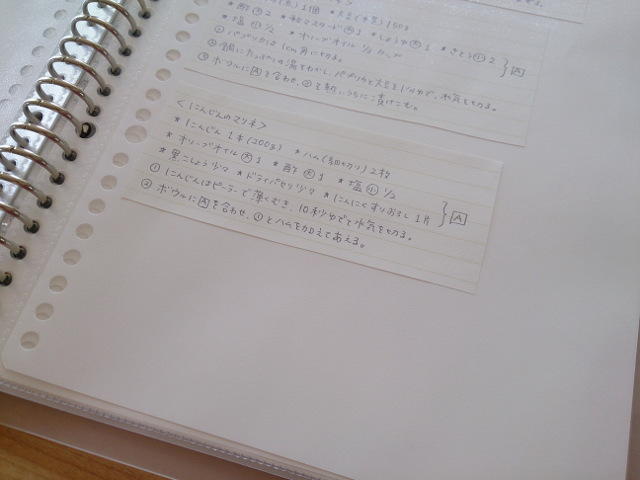 (赤)1個 * 大豆(水煮)150g
* 酢 大2 * 粒マスタード 大1 * しょうゆ 大1 * さとう 小2
* 塩 小1/2 * オリーブオイル 1/3カップ } A
① パプリカは1cm角に切る。
② 鍋にたっぷりの湯をわかし、パプリカと大豆を1分ゆで、水気を切る。
③ ボウルにAを合わせ、②を熱いうちに漬けこむ。
<にんじんのマリネ>
* にんじん 1本(200g) * ハム(細切り)2枚
* オリーブオイル 大1 * 酢 大1 * 塩 小1/2
* 黒こしょう少々 * ドライパセリ少々 * にんにくすりおろし 1片 } A
① にんじんはピーラーで薄くむき、10秒ゆでて水気を切る。
② ボウルにAを合わせ、①とハムを加えてあえる。